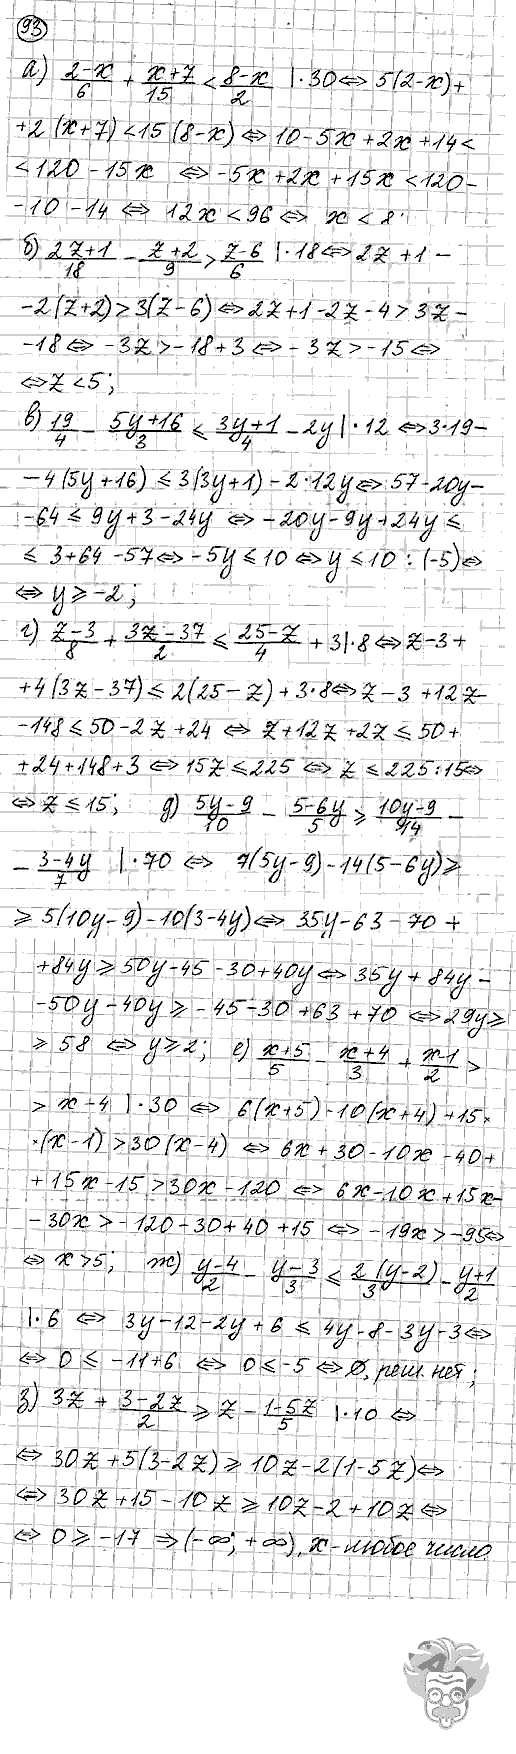 93
а) (2-x)/6 + (x+7)/15 < (8-x)/2 |·30 ⇔ 5(2-x)+
+2(x+7)<15(8-x) ⇔ 10-5x+2x+14<
<120-15x ⇔ -5x+2x+15x<120-
-10-14 ⇔ 12x<96 ⇔ x<8
б) (2z+1)/18 - (z+2)/9 > (z-6)/6 |·18 ⇔ 2z+1-
-2(z+2)>3(z-6) ⇔ 2z+1-2z-4>3z-
-18 ⇔ -3z>-18+3 ⇔ -3z>-15 ⇔
⇔ z<5;
в) 19/4 - (5y+16)/3 ≤ (3y+1)/4 - 2y |·12 ⇔ 3·19-
-4(5y+16) ≤ 3(3y+1)-2·12y ⇔ 57-20y-
-64 ≤ 9y+3-24y ⇔ -20y-9y+24y ≤
≤ 3+64-57 ⇔ -5y ≤ 10 ⇔ y ≤ 10:(-5) ⇔
⇔ y ≥ -2;
г) (z-3)/8 + (3z-37)/2 ≤ (25-z)/4 + 3 |·8 ⇔ z-3+
+4(3z-37) ≤ 2(25-z)+3·8 ⇔ z-3+12z-
-148 ≤ 50-2z+24 ⇔ z+12z+2z ≤ 50+
+24+148+3 ⇔ 15z ≤ 225 ⇔ z ≤ 225:15 ⇔
⇔ z ≤ 15; д) (5y-9)/10 - (5-6y)/5 ≥ (10y-9)/14 -
- (3-4y)/7 |·70 ⇔ 7(5y-9)-14(5-6y) ≥
≥ 5(10y-9)-10(3-4y) ⇔ 35y-63-70+
+84y ≥ 50y-45-30+40y ⇔ 35y+84y-
-50y-40y ≥ -45-30+63+70 ⇔ 29y ≥
≥ 58 ⇔ y ≥ 2; е) (x+5)/5 - (x+4)/3 + (x-1)/2 >
> x-4 |·30 ⇔ 6(x+5)-10(x+4)+15×
×(x-1)>30(x-4) ⇔ 6x+30-10x-40+
+15x-15>30x-120 ⇔ 6x-10x+15x-
-30x>-120-30+40+15 ⇔ -19x>-95 ⇔
⇔ x>5; ж) (y-4)/2 - (y-3)/3 ≤ 2(y-2)/3 - (y+1)/2
|·6 ⇔ 3y-12-2y+6 ≤ 4y-8-3y-3 ⇔
⇔ 0 ≤ -11+6 ⇔ 0 ≤ -5 ⇔ ∅, реш. нет;
з) 3z + (3-2z)/2 ≥ z - (1-5z)/5 |·10 ⇔
⇔ 30z+5(3-2z) ≥ 10z-2(1-5z) ⇔
⇔ 30z+15-10z ≥ 10z-2+10z ⇔
⇔ 0 ≥ -17 ⇒ (-∞; +∞), x-любое число